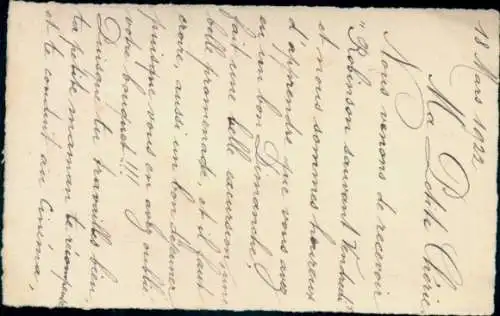 18 Mars 1922
Ma Petite Chérie
Nous venons de recevoir
"Robinson sauvant Vendredi"
et nous sommes heureux
d'apprendre que vous avez
eu un bon Dimanche,
fait une belle excursion, une
belle promenade, et il faut
croire, aussi un bon déjeuner
puisque vous en avez oublié
votre bouquet!!!
Puisque tu travailles bien,
ta petite maman te récompense
et te conduit au Cinéma,